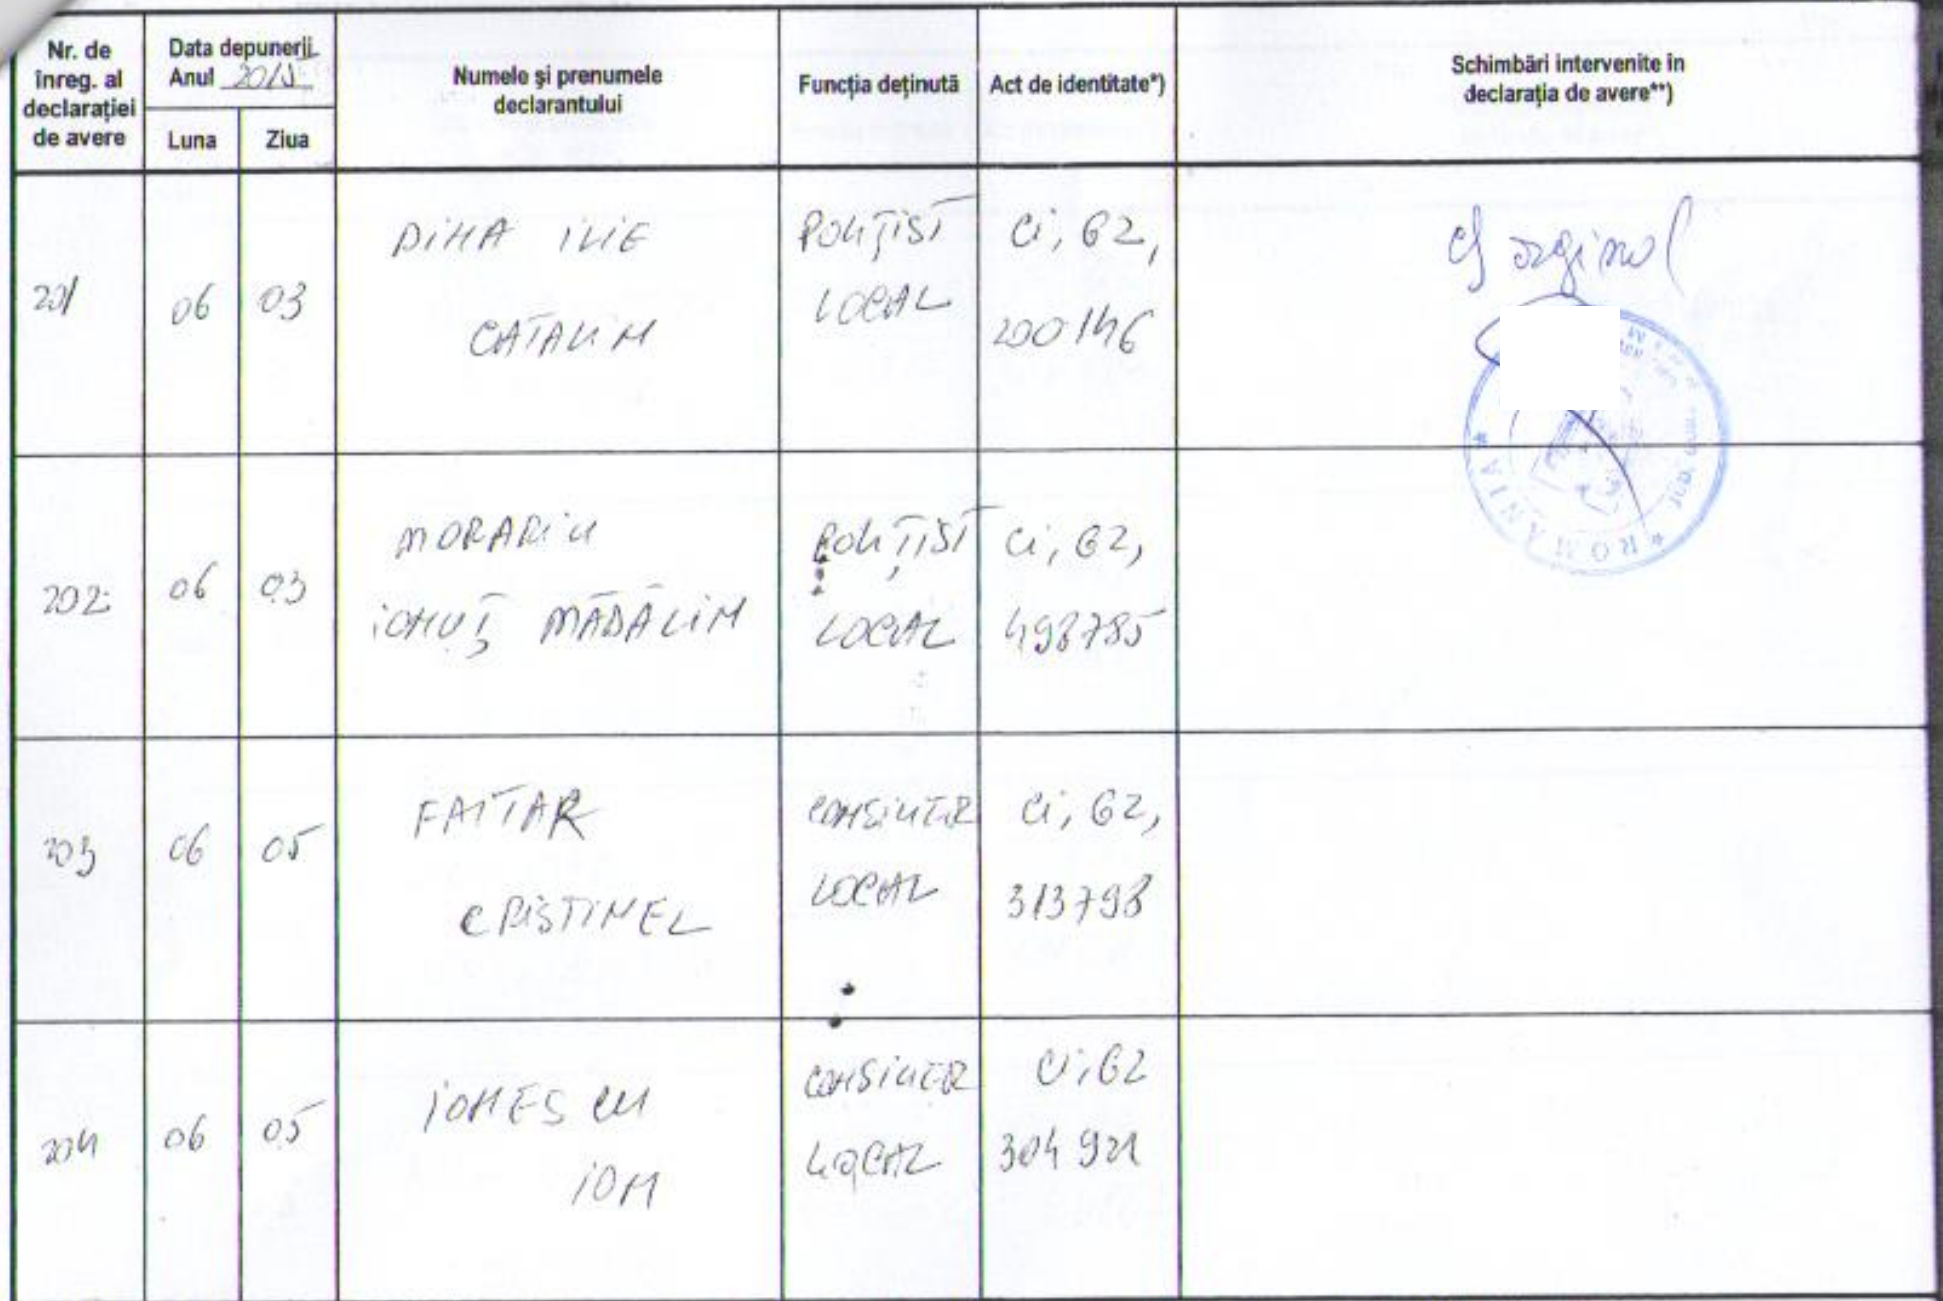 Nr. de
înreg. al
declarației
de avere
Data depunerii
Anul 2015
Luna
Ziua
Numele și prenumele
declarantului
Funcția deținută
Act de identitate*)
Schimbări intervenite în
declarația de avere**)
201
06
03
DIMA ILIE
CATALIN
POLIȚIST
LOCAL
Ci, GZ,
200146
cf original
202
06
03
MORARIU
IONUȚ MĂDĂLIN
POLIȚIST
LOCAL
Ci, GZ,
498785
ROMANIA
203
06
05
CRISTINEL
CONSILIER
LOCAL
Ci, GZ,
313798
204
06
05
IONESCU
ION
CONSILIER
LOCAL
Ci, GZ
304921